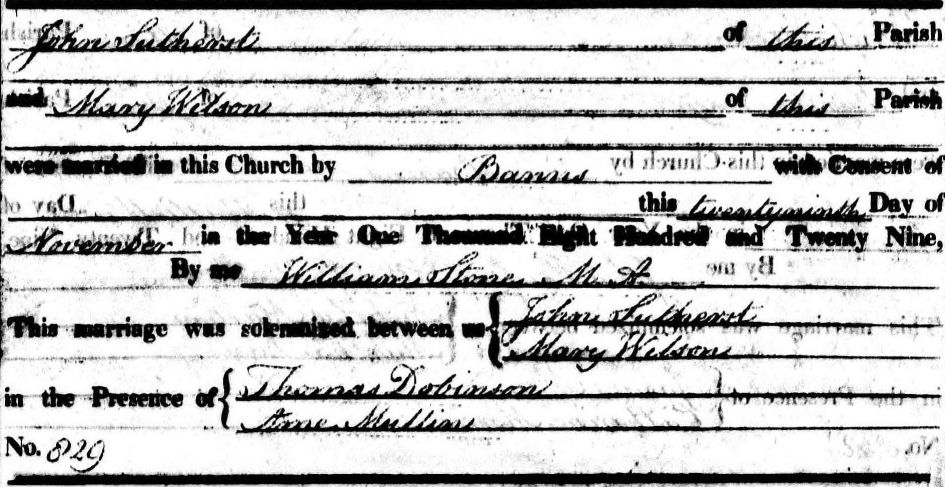 John Sutherst of this Parish
and Mary Wilson of this Parish
were married in this Church by Banns with Consent of
this twentyninth Day of
November in the Year One Thousand Eight Hundred and Twenty Nine,
By me William Stone M. A.
This marriage was solemnized between us { John Sutherst
Mary Wilson
in the Presence of { Thomas Dobinson
Ann Mullin
No. 829